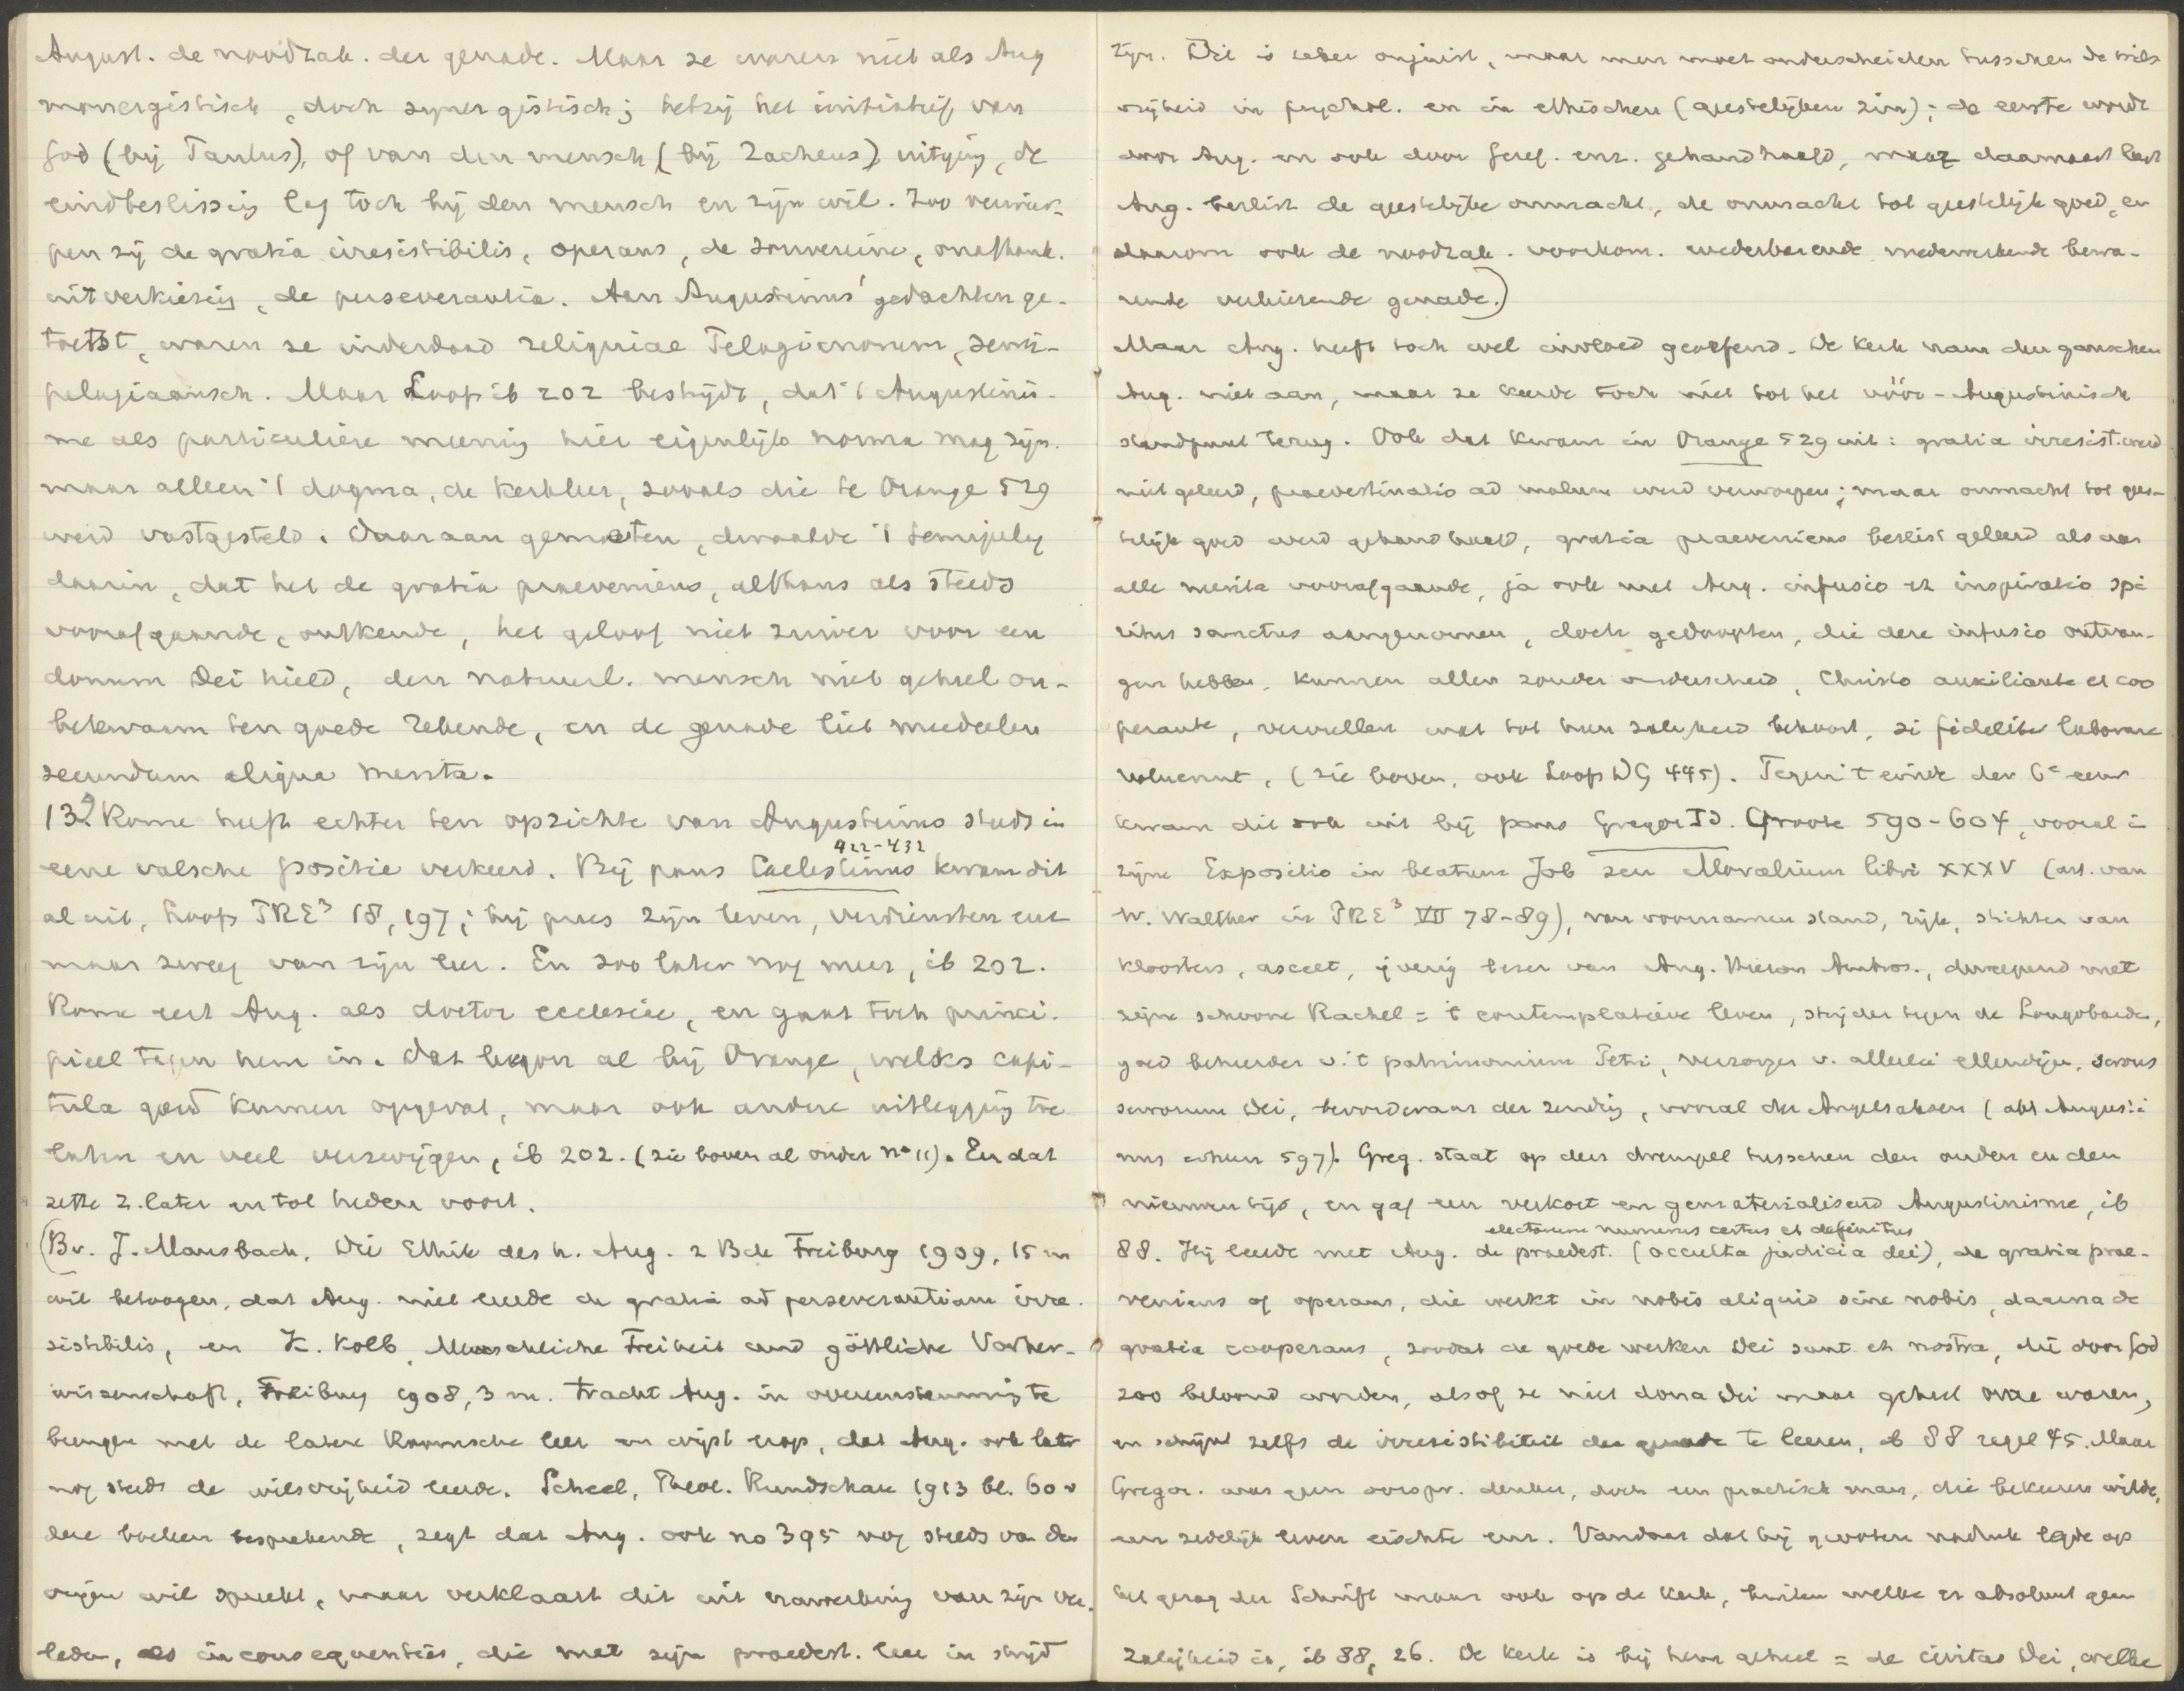 August. de noodzak. der genade. Maar ze waren niet als Aug
monergistisch, doch synergistisch; hetzij het initiatief van
God (bij Paulus), of van den mensch (bij Zacheus) uitging, de
eindbeslissing lag toch bij den mensch en zijn wil. Zoo verwier-
pen zij de gratia irresistibilis, operans, de souvereine, onafhank.
uitverkiezing, de perseverantia. Aan Augustinus' gedachten ge-
toetst, waren ze inderdaad reliquiae Pelagianorum, semi-
pelagiaansch. Maar Loofs ib 202 bestrijdt, dat 't Augustinis-
me als particuliere meening hier eigenlijk norma mag zijn.
maar alleen 't dogma, de kerkleer, zooals die te Orange 529
werd vastgesteld. Daaraan gemeten, dwaalde 't semipelag
daarin, dat het de gratia praeveniens, althans als steeds
voorafgaande, ontkende, het geloof niet zuiver voor een
donum Dei hield, den natuurl. mensch niet geheel on-
bekwaam ten goede rekende, en de genade liet meedeelen
secundum aliqua merita.
13º. Rome heeft echter ten opzichte van Augustinus steeds in
422-432
eene valsche positie verkeerd. Bij paus Caelestinus kwam dit
al uit, Loofs PRE³ 18, 197; hij prees zijn leven, verdiensten enz
maar zweeg van zijn leer. En zoo later nog meer, ib 202.
Rome eert Aug. als doctor ecclesiae, en gaat toch princi-
pieel tegen hem in. Dat begon al bij Orange, welks capi-
tula goed kunnen opgevat, maar ook andere uitlegging toe
laten en veel verzwijgen, ib 202. (zie boven al onder nº 11). En dat
zette z. later en tot heden voort.
(Bv. J. Mausbach, Die Ethik des h. Aug. 2 Bde Freiburg 1909, 15 m
wil betoogen, dat Aug. niet leerde de gratia ad perseverantiam irre-
sistibilis, en K. Kolb, Menschliche Freiheit und göttliche Vorher-
wissenschaft, Freiburg 1908, 3 m. tracht Aug. in overeenstemming te
brengen met de latere Roomsche leer en wijst erop, dat Aug. ook later
nog steeds de wilsvrijheid leerde. Scheel, Theol. Rundschau 1913 bl. 60 v
deze boeken besprekende, zegt dat Aug. ook na 395 nog steeds van den
vrijen wil spreekt, maar verklaart dit uit nawerking van zijn ver-
leden, als inconsequenties, die met zijn praedest. leer in strijd
zijn. Dit is zeker onjuist, maar men moet onderscheiden tusschen de wils
vrijheid in psychol. en in ethischen (geestelijken zin); de eerste wordt
door Aug. en ook door Geref. enz. gehandhaafd, maar daarnaast leert
Aug. beslist de geestelijke onmacht, de onmacht tot geestelijk goed, en
daarom ook de noodzak. voorkom. wederbarende medewerkende bewa-
rende verkiezende genade.)
Maar Aug. heeft toch wel invloed geoefend. De Kerk nam den ganschen
Aug. niet aan, maar ze keerde toch niet tot het vóór-Augustinisch
standpunt terug. Ook dat kwam in Orange 529 uit: gratia irresist. werd
niet geleerd, praedestinatio ad malum werd verworpen; maar onmacht tot gees-
telijk goed werd gehandhaafd, gratia praeveniens beslist geleerd als aan
alle merita voorafgaande, ja ook met Aug. infusio et inspiratio spi
ritus sanctus aangenomen, doch gedoopten, die deze infusio ontvan-
gen hebben, kunnen allen zonder onderscheid, Christo auxiliante et coo
perante, vervullen wat tot hun zaligheid behoort, si fideliter laborare
voluerint, (zie boven, ook Loofs DG 445). Tegen 't einde der 6e eeuw
kwam dit ook uit bij paus Gregor I d. Groote 590-604, vooral i
zijne Expositio in beatum Job seu Moralium libri XXXV (art. van
W. Walther in PRE³ VII 78-89), van voornamen stand, rijk, stichter van
kloosters, asceet, ijverig lezer van Aug. Hieron Ambros., dweepend met
zijne schoone Rachel = 't contemplatieve leven, strijder tegen de Longobarden,
goed beheerder v. 't patrimonium Petri, verzorger v. allerlei ellendigen, servus
servorum Dei, bevorderaar der zending, vooral der Angelsaksen (abt Augusti
nus 597). Greg. staat op den drempel tusschen den ouden en den
nieuwen tijd, en gaf een verkort en gematerialiseerd Augustinisme, ib
electorum numerus certus et definitus
88. Hij leerde met Aug. de praedest. (occulta judicia dei), de gratia prae-
veniens of operans, die werkt in nobis aliquid sine nobis, daarna de
gratia cooperans, zoodat de goede werken Dei sunt et nostra, die door God
zoo beloond worden, alsof ze niet dona Dei maar geheel onze waren,
en schijnt zelfs de irresistibiliteit der genade te leeren, ib 88 regel 45. Maar
Gregor. was geen oorspr. denker, doch een practisch man, die bekeeren wilde,
een zedelijk leven eischte enz. Vandaar dat hij grooten nadruk legde op
het gezag der Schrift maar ook op de Kerk, buiten welke er absoluut geen
zaligheid is, ib 88, 26. De Kerk is bij hem geheel = de civitas Dei, welke